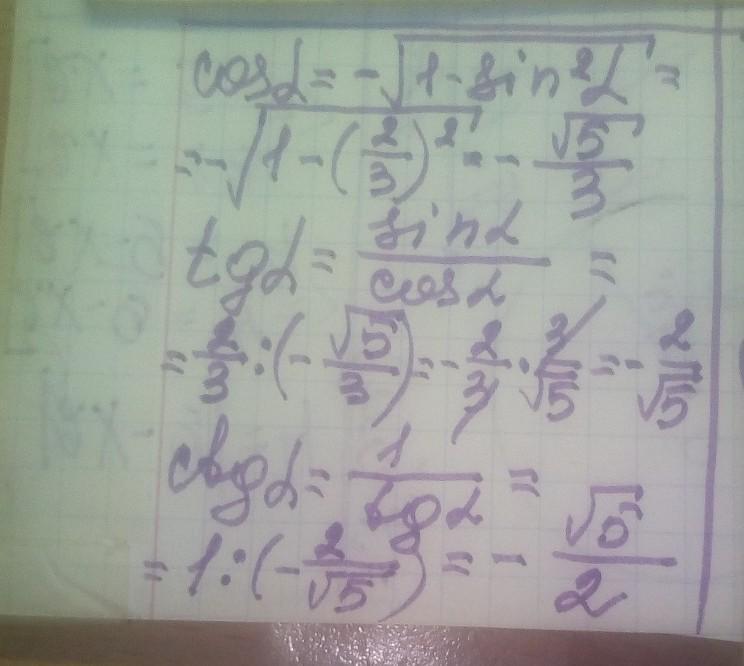 cosα = -√(1-sin²α) =
= -√(1-(2/3)²) = -√5/3
tgα = sinα/cosα =
= 2/3 : (-√5/3) = -2/3 · 3/√5 = -2/√5
ctgα = 1/tgα =
= 1 : (-2/√5) = -√5/2